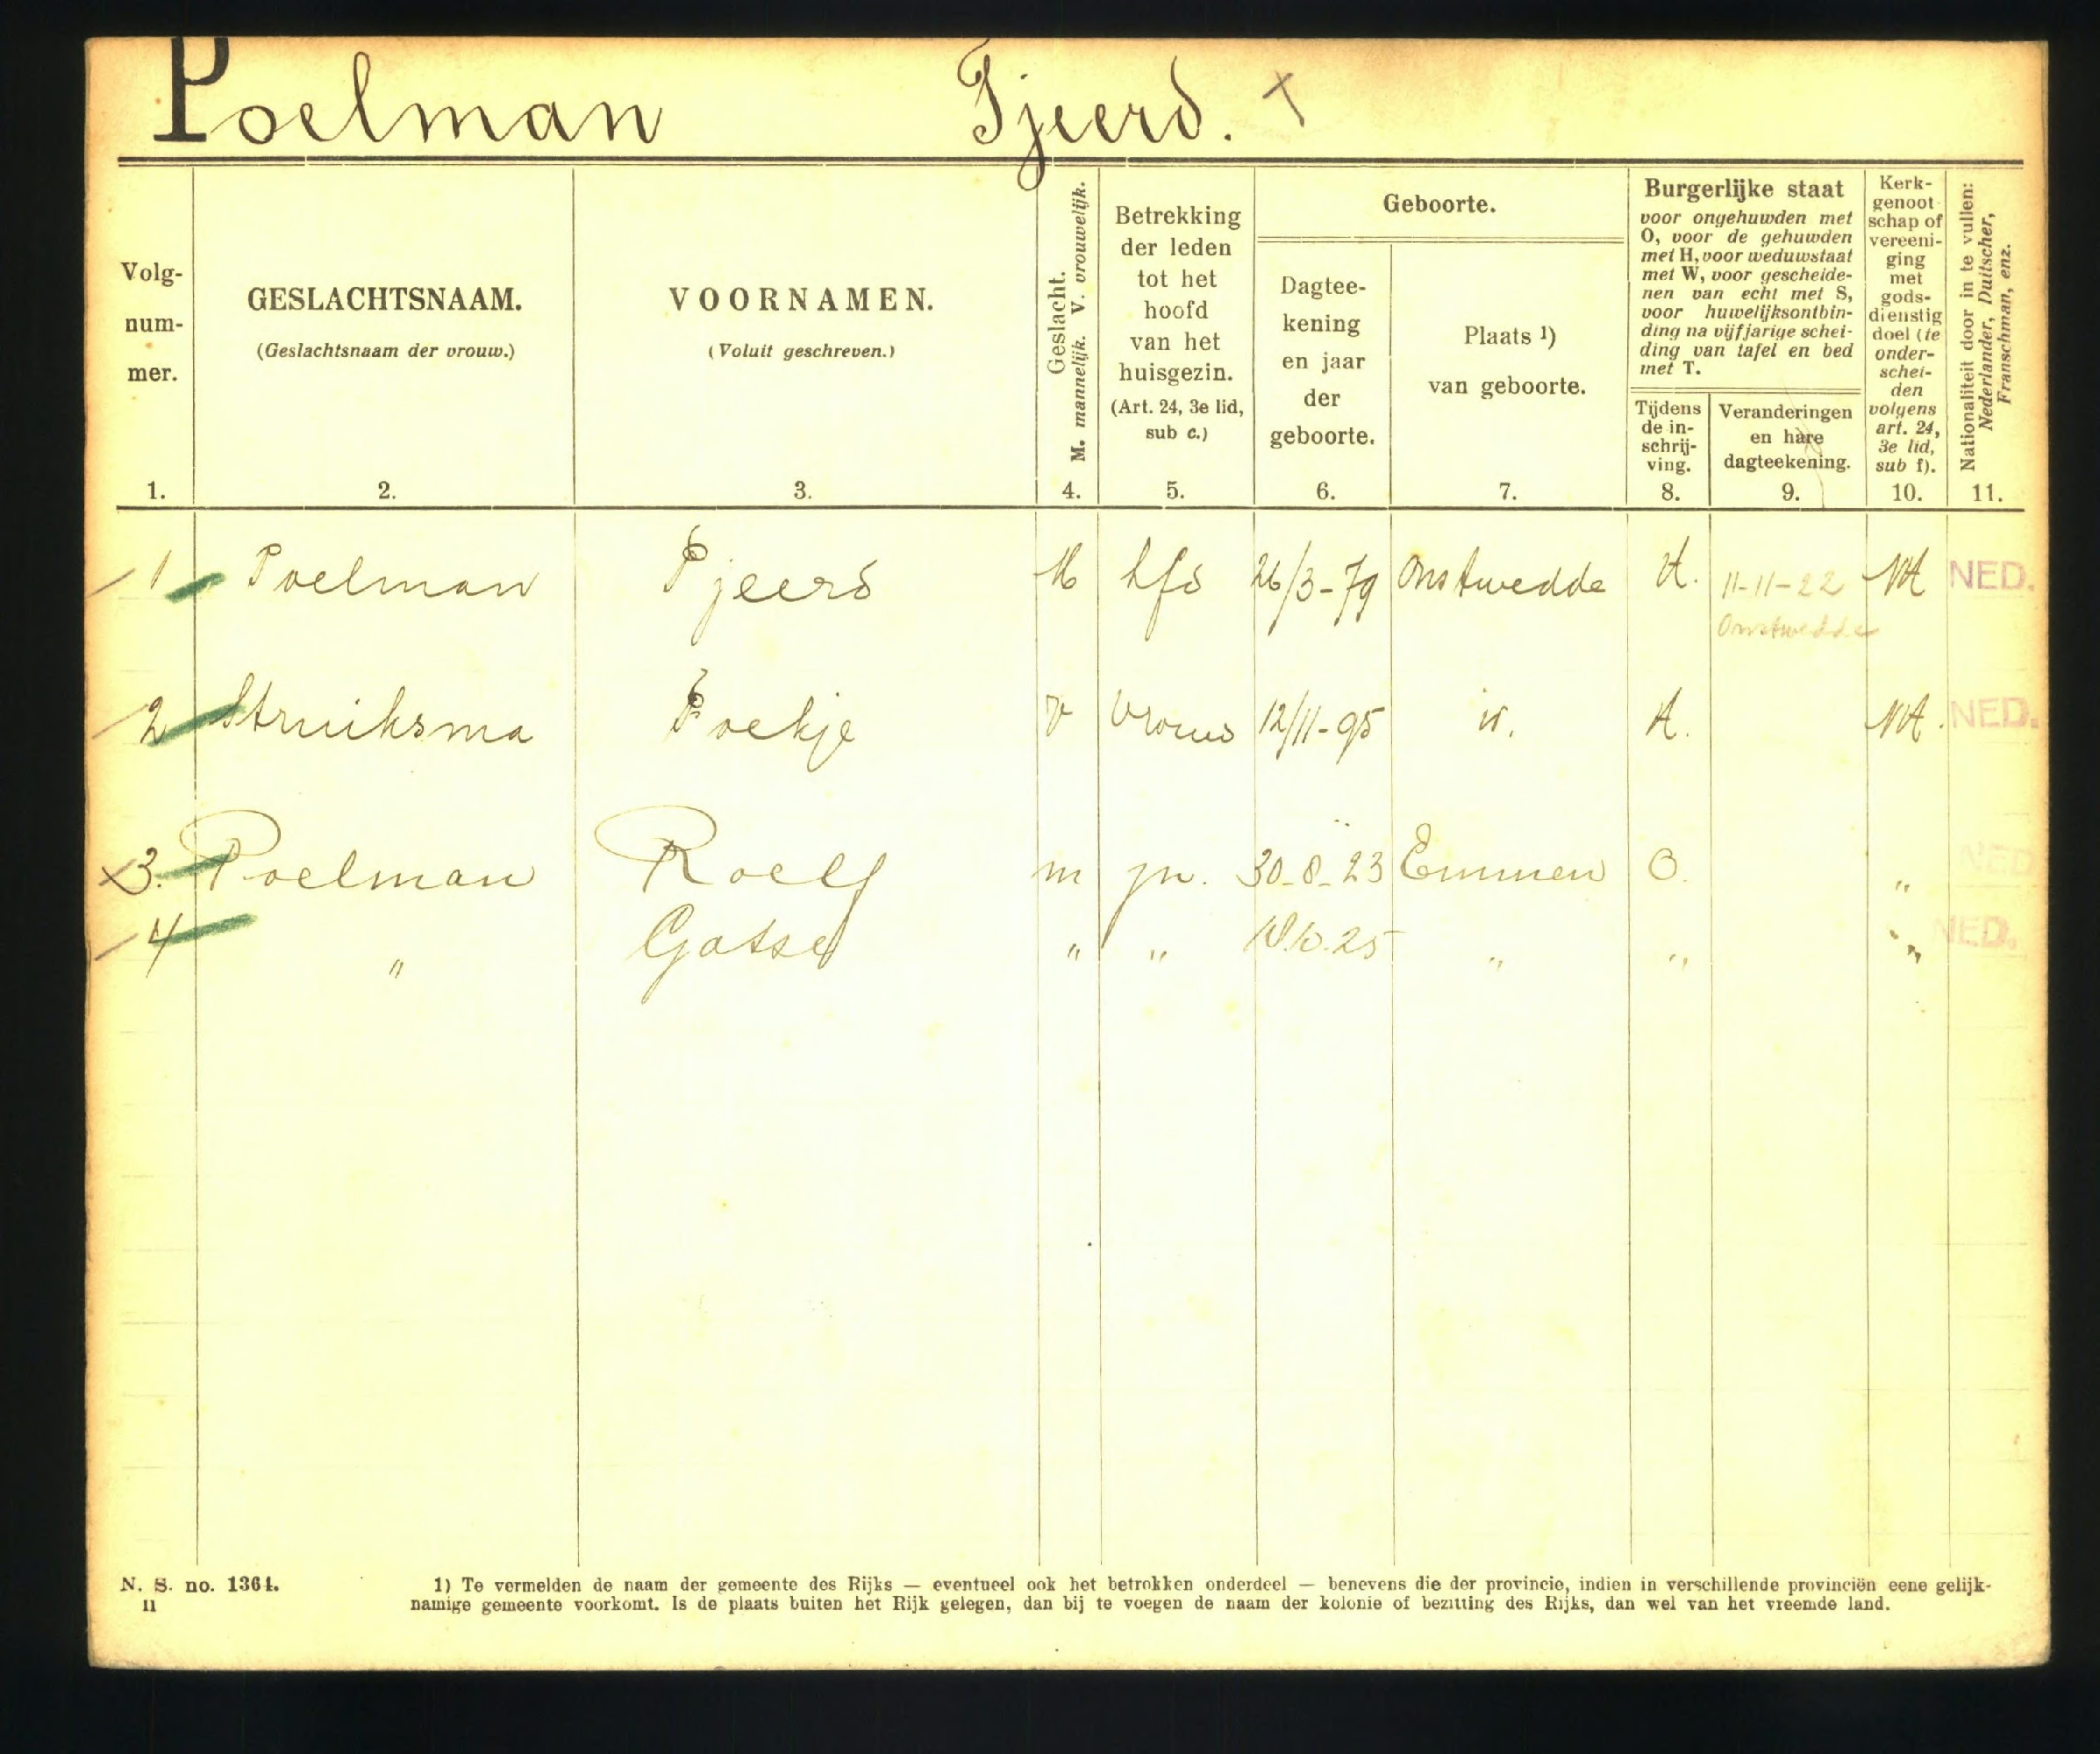 Poelman Tjeerd.
Volg-
num-
mer.
1.
GESLACHTSNAAM.
(Geslachtsnaam der vrouw.)
2.
VOORNAMEN.
(Voluit geschreven.)
3.
Geslacht.
M. mannelijk. V. vrouwelijk.
4.
Betrekking
der leden
tot het
hoofd
van het
huisgezin.
(Art. 24, 3e lid,
sub c.)
5.
Geboorte.
Dagtee-
kening
en jaar
der
geboorte.
6.
Plaats 1)
van geboorte.
7.
Burgerlijke staat
voor ongehuwden met
O, voor de gehuwden
met H, voor weduwstaat
met W, voor gescheide-
nen van echt met S,
voor huwelijksontbin-
ding na vijfjarige schei-
ding van tafel en bed
met T.
Tijdens
de in-
schrij-
ving.
8.
Veranderingen
en hare
dagteekening.
9.
Kerk-
genoot-
schap of
vereeni-
ging
met
gods-
dienstig
doel (te
onder-
schei-
den
volgens
art. 24,
3e lid,
sub f).
10.
Nationaliteit door in te vullen:
Nederlander, Duitscher,
Franschman, enz.
11.
1 Poelman Tjeerd M hfd 26/3-79 Onstwedde H. 11-11-22 NH NED.
Onstwedde
2 Struiksma Toekje V vrouw 12/11-95 H. NH. NED.
3. Poelman Roelf m zn. 30-8-23 Emmen O. " NED
4 " " " 25 " " " NED.
N. S. no. 1364.
11
1) Te vermelden de naam der gemeente des Rijks — eventueel ook het betrokken onderdeel — benevens die der provincie, indien in verschillende provinciën eene gelijk-
namige gemeente voorkomt. Is de plaats buiten het Rijk gelegen, dan bij te voegen de naam der kolonie of bezitting des Rijks, dan wel van het vreemde land.